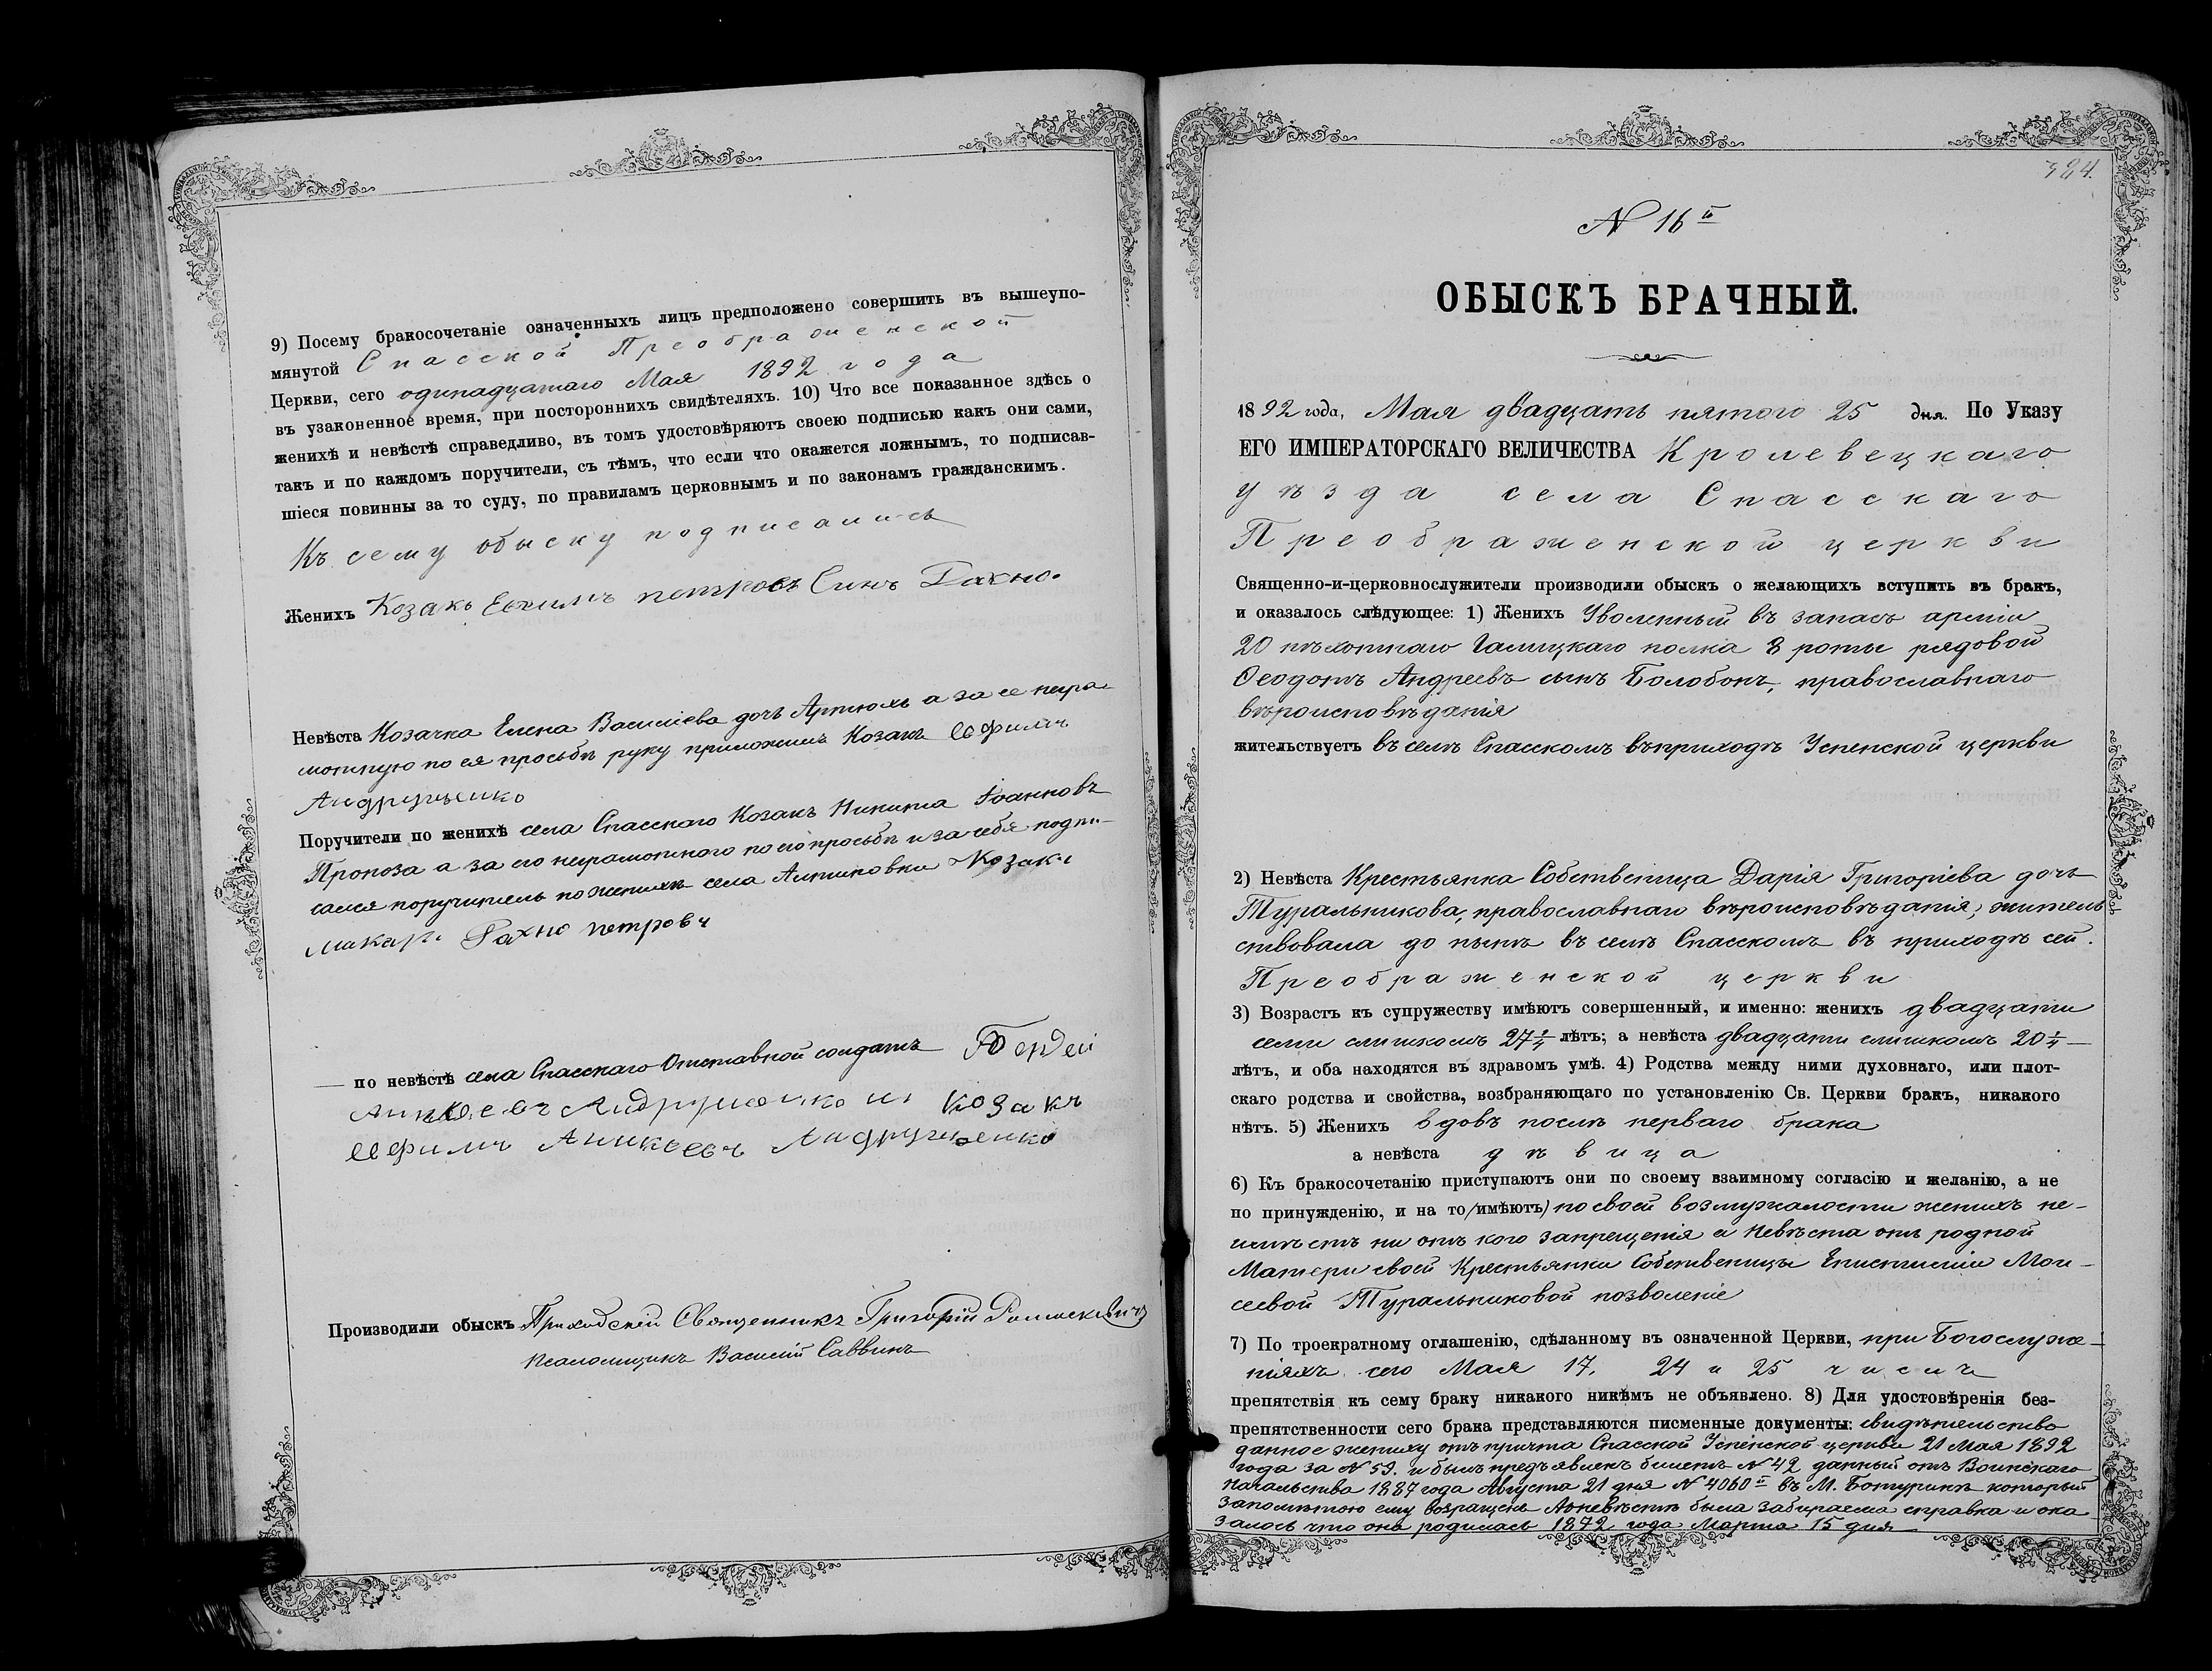 9) Посему бракосочетаніе означенныхъ лицъ предположено совершить въ вышеупо-
мянутой Спасской Преображенской
Церкви, сего одинадцатаго Мая 1892 года
въ узаконенное время, при постороннихъ свидѣтеляхъ. 10) Что все показанное здѣсь о
женихѣ и невѣстѣ справедливо, въ томъ удостовѣряютъ своею подписью какъ они сами,
такъ и по каждомъ поручители, съ тѣмъ, что если что окажется ложнымъ, то подписав-
шіеся повинны за то суду, по правиламъ церковнымъ и по законамъ гражданскимъ.
Къ сему обыску подписались
Женихъ Козакъ Ефимъ петровъ Синъ Рахно.
Невѣста Козачка Елена Василіева дочь Артюхъ а за ее негра-
мотную по ея просьбѣ руку приложилъ Козакъ Ефимъ
Андрущенко
Поручители по женихѣ села Спасскаго Козакъ Никита Іоанновъ
а за его неграмотного по его просьбѣ и за себя подпи-
сался поручитель по женихѣ села Алтиновки Козакъ
макаръ Рахно петровъ
по невѣстѣ села Спасскаго Отставной солдатъ
Андрущенко и козакъ
Ефимъ Аникѣевъ Андрущенко
Производили обыскъ Приходскій Священникъ Григорій
Псаломщикъ Василій Саввинъ
384.
N 16й
ОБЫСКЪ БРАЧНЫЙ.
1892 года, Мая двадцать пятого 25 дня. По Указу
ЕГО ИМПЕРАТОРСКАГО ВЕЛИЧЕСТВА Кролевецкаго
уѣзда села Спасскаго
Преображенской церкви
Священно-и-церковнослужители производили обыскъ о желающихъ вступить въ бракъ,
и оказалось слѣдующее: 1) Женихъ Уволенный въ запасъ арміи
20 пѣхотнаго Галицкаго полка 8 роты рядовой
Ѳеодотъ Андреевъ сынъ Болобонъ, православнаго
вѣроисповѣданія
жительствуетъ въ селѣ Спасскомъ въ приходѣ Успенской церкви
2) Невѣста Крестьянка Собственица Дарія Григоріева дочь
Туральникова, православнаго вѣроисповѣданія, житель
ствовала до нынѣ въ селѣ Спасскомъ въ приходѣ сей
Преображенской церкви
3) Возрастъ къ супружеству имѣютъ совершенный, и именно: женихъ двадцати
семи слишкомъ 27¼ лѣтъ; а невѣста двадцати слишкомъ 20¼
лѣтъ, и оба находятся въ здравомъ умѣ. 4) Родства между ними духовнаго, или плот-
скаго родства и свойства, возбраняющаго по установленію Св. Церкви бракъ, никакого
нѣтъ. 5) Женихъ вдовъ послѣ перваго брака
а невѣста дѣвица
6) Къ бракосочетанію приступаютъ они по своему взаимному согласію и желанію, а не
по принужденію, и на то/имѣютъ) по своей возмужалости женихъ не-
имѣетъ ни отъ кого запрещенія а Невѣста отъ родной
Матери своей Крестьянки Собственицы Епистиміи Мои-
сеевой Туральниковой позволеніе
7) По троекратному оглашенію, сдѣланному въ означенной Церкви, при Богослуже-
ніяхъ сего Мая 17, 24 и 25 числъ
препятствія къ сему браку никакого никѣмъ не объявлено. 8) Для удостовѣренія без-
препятственности сего брака представляются писменные документы: свидѣтельство
данное жениху отъ причта Спасской Успенской церкви 21 Мая 1892
года за N 59. и былъ предъявленъ билетъ N 42 данный отъ Воинскаго
Начальства 1887 года Августа 21 дня N 4060й въ М. Батуринѣ который
ему возращенъ Аоневѣстѣ была забираема справка и ока
залось что она родилась 1872 года Марта 15 дня